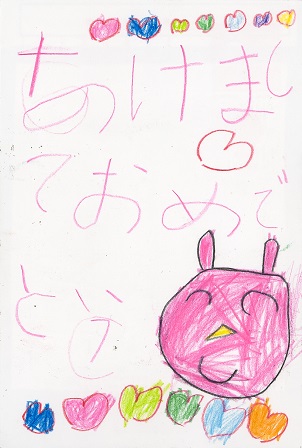 あけまし
ておめで
とう